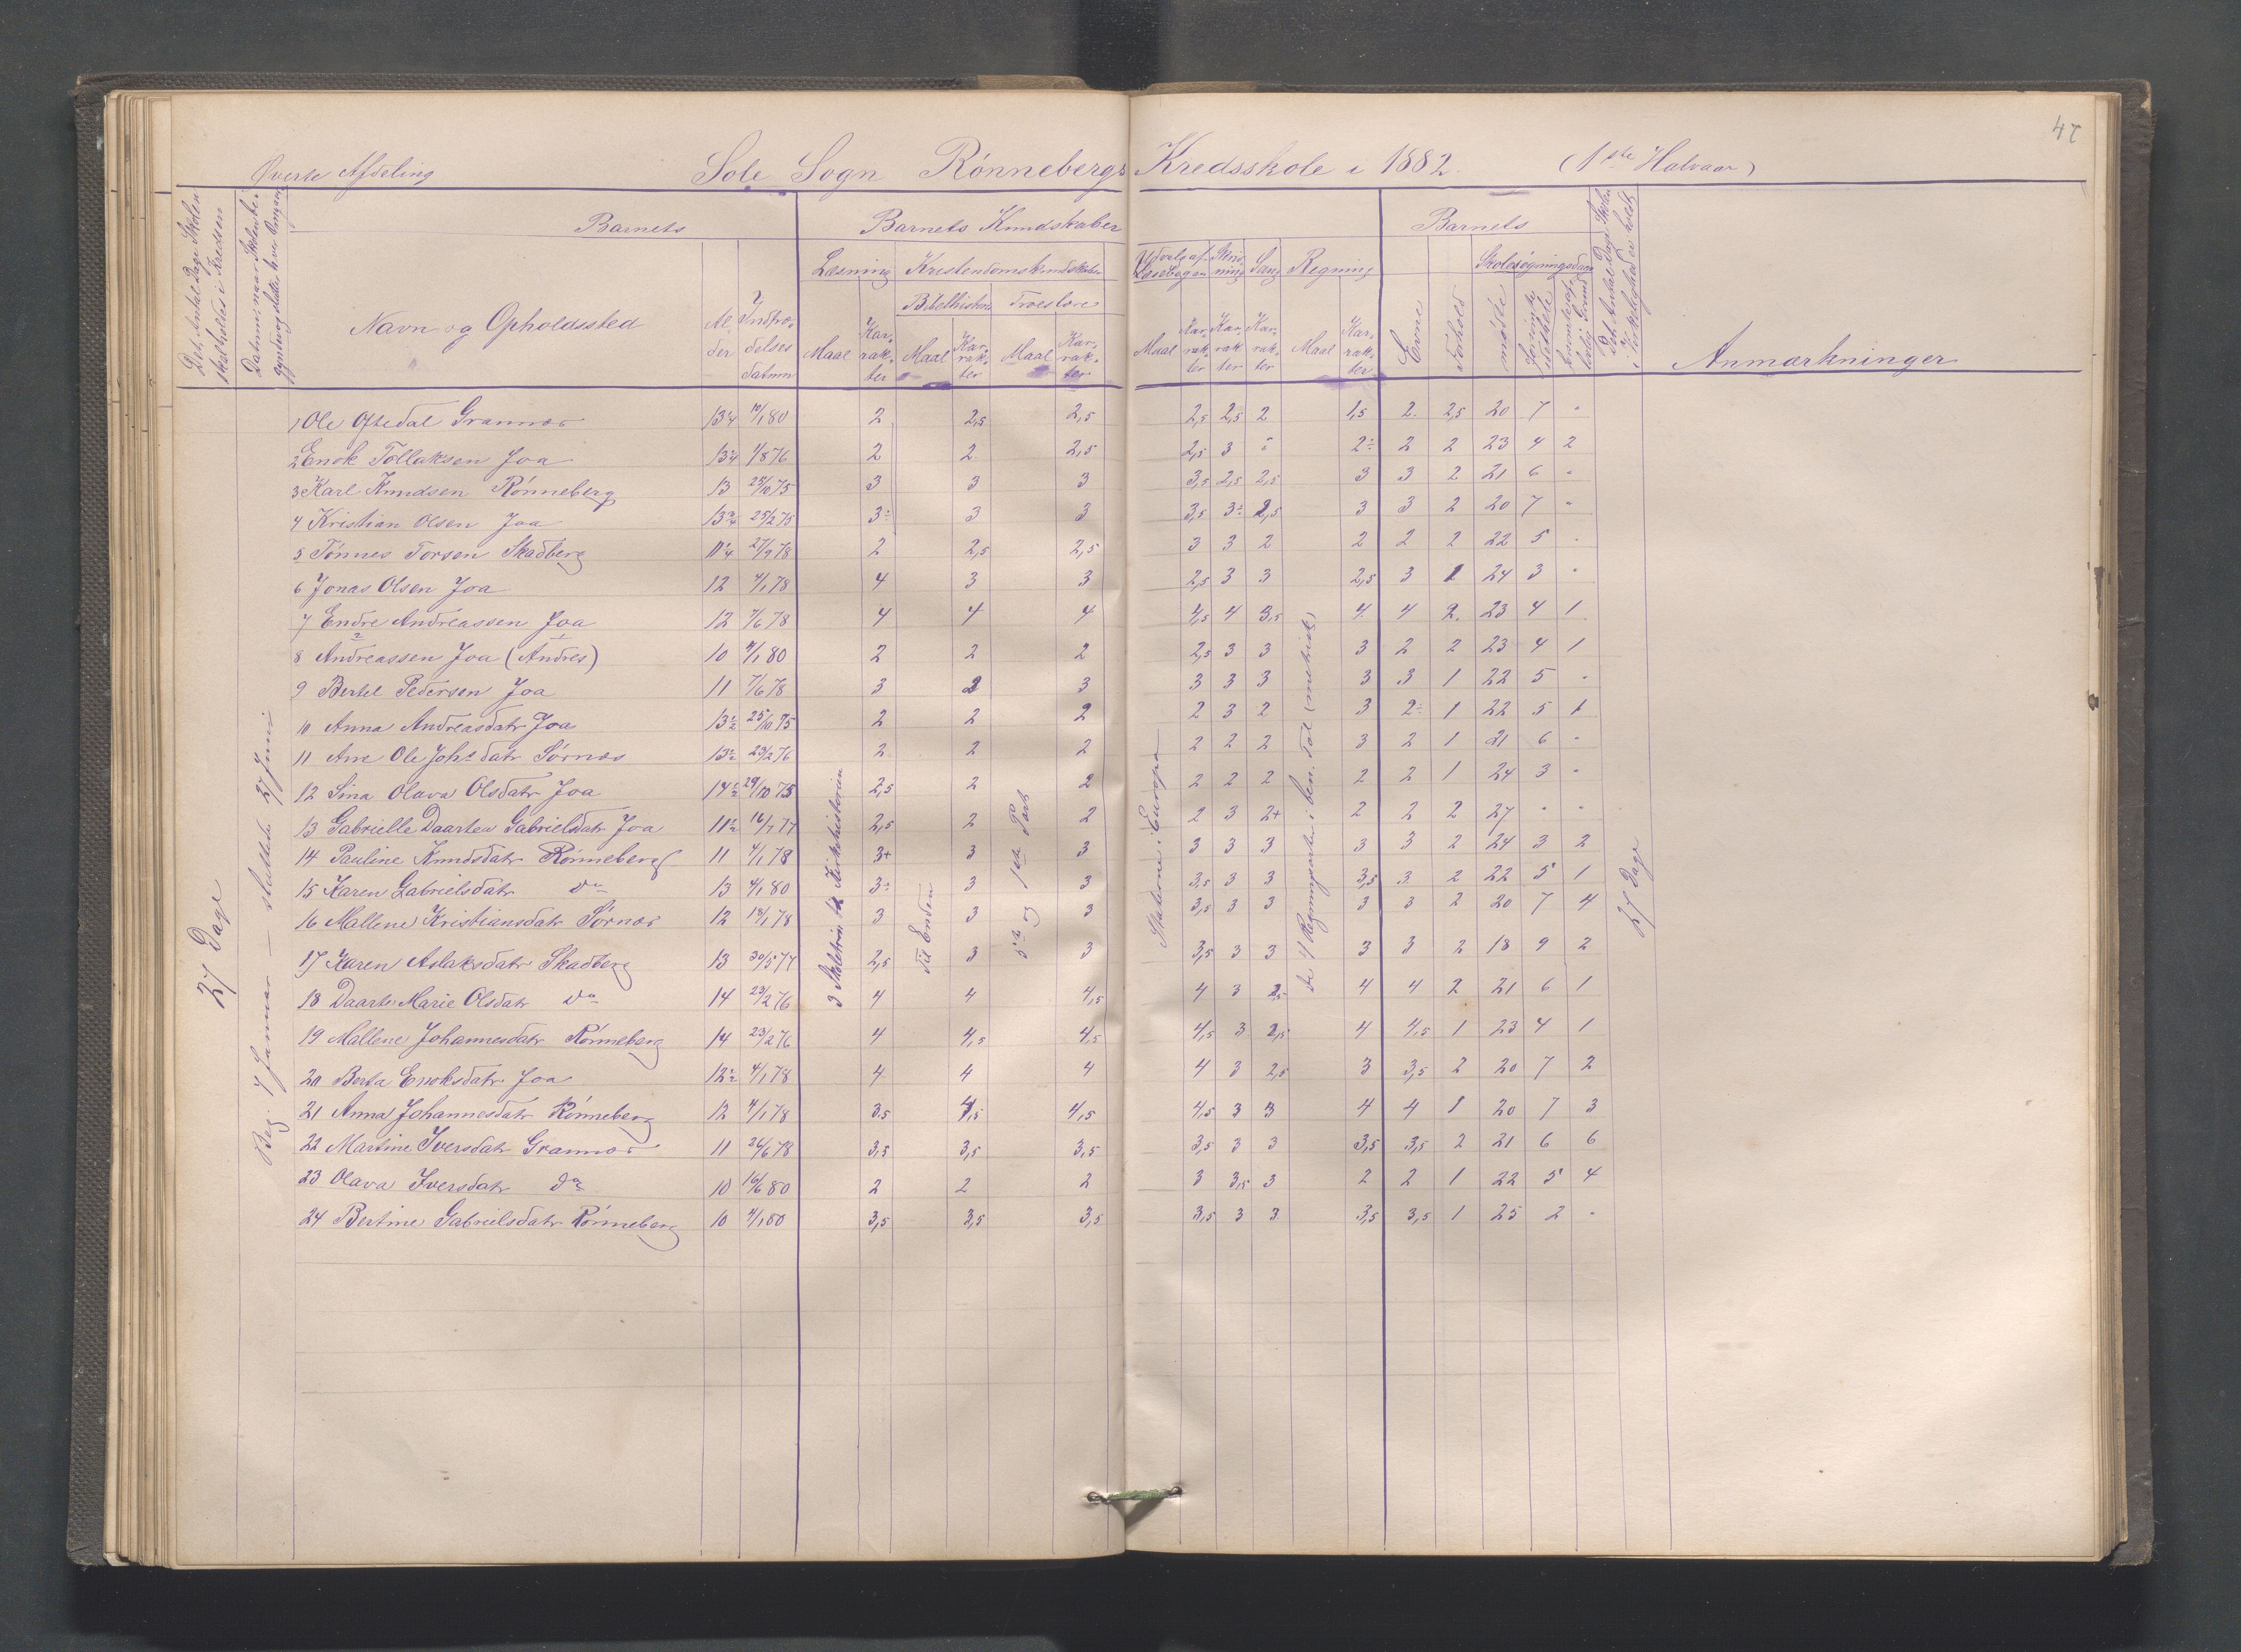 47
Øverste Afdeling Sole Sogn Rønnebergs Kredsskole i 1882. (1ste Halvaar)
Det Antal Dage Skolen skal holdes i Kredsen
Datum, naar Skolen begyndte og slutter hver Omgang
Barnets
Barnets Kundskaber
Barnets
Læsning Kristendomskundskaber Udvalg af Læsebogen Skrivning Sang Regning Skolesøgningsdage
Bibelhistorie Troeslære
Navn og Opholdssted Alder Indtrædelses datum Maal Karakter Maal Karakter Maal Karakter Maal Karakter Karakter Karakter Maal Karakter Evne Forhold mødte
Det Antal Dage Skolen i Virkeligheden er holdt
Anmærkninger
27 Dage
Beg. 7 Januar — sluttede 27 Juni
3 Skoletrin til Kirkehistorien
Til Enden
5te og 1ste Part
Staterne i Europa
de 4 Regningsarter i ben. Tal (metrisk)
27 Dage
1 Ole Oftedal Grannes 13¼ 10/1 80 2 2,5 2,5 2,5 2,5 2 1,5 2. 2,5 20 7 "
2 Enok Tollaksen Joa 13¼ 1/8 76 2 2 2,5 2,5 3 " 2÷ 2 2 23 4 2
3 Karl Knudsen Rønneberg 13 25/10 75 3 3 3 3,5 2,5 2,5 3 3 2 21 6 "
4 Kristian Olsen Joa 13¾ 25/2 75 3÷ 3 3 3,5 3÷ 2,5 3 3 2 20 7 "
5 Tønnes Torsen Skadberg 11¼ 27/9 78 2 2,5 2,5 3 3 2 2 2 2 22 5 "
6 Jonas Olsen Joa 12 4/1 78 4 3 3 2,5 3 3 2,5 3 1 24 3 "
7 Endre Andreassen Joa 12 7/6 78 4 4 4 4,5 4 3,5 4 4 2. 23 4 1
8 Andreassen Joa (Andres) 10 4/1 80 2 2 2 2,5 3 3 3 2 2 23 4 1
9 Bertel Pedersen Joa 11 7/6 78 3 2 3 3 3 3 3 3 1 22 5 "
10 Anna Andreasdatr Joa 13½ 25/10 75 2 2 2 2 3 2 3 2÷ 1 22 5 1
11 Ane Ole Johs datr Sørnes 13½ 23/2 76 2 2 2 2 2 2 3 2 1 21 6 "
12 Sina Olava Olsdatr Joa 14½ 29/10 75 2,5 2 2 2 2 2 2 2 1 24 3 "
13 Gabrielle Daartea Gabrielsdatr Joa 11½ 16/7 77 2,5 2 2 2 3 2+ 2 2 2 27 " "
14 Pauline Knudsdatr Rønneberg 11 4/1 78 3+ 3 3 3 3 3 3 3 2 24 3 2
15 Karen Gabrielsdatr do 13 4/1 80 3÷ 3 3 3,5 3 3 3,5 3 2 22 5 1
16 Mallene Kristiansdatr Sørnes 12 18/1 78 3 3 3 3,5 3 3 3 3 2 20 7 4
17 Karen Aslaksdatr Skadberg 13 30/5 77 2,5 3 3 3,5 3 3 3 3 2 18 9 2
18 Daarte Marie Olsdatr do 14 23/2 76 4 4 4,5 4 3 2,5 4 4 2 21 6 1
19 Mallene Johannesdatr Rønneberg 14 23/2 76 4 4,5 4,5 4,5 3 2,5 4 4,5 1 23 4 1
20 Berta Enoksdatr Joa 12½ 4/1 78 4 4 4 4 3 2,5 3 3,5 2 20 7 2
21 Anna Johannesdatr Rønneberg 12 4/1 78 3,5 4,5 4,5 4,5 3 3 4 4 1 20 7 3
22 Martine Iversdatr Grannes 11 26/6 78 3,5 3,5 3,5 3,5 3 3 3,5 3,5 2 21 6 6
23 Olava Iversdatr do 10 16/6 80 2 2 2 3 3,5 3 2 2 1 22 5 4
24 Bertine Gabrielsdatr Rønneberg 10 4/1 80 3,5 3,5 3,5 3,5 3 3 3,5 3,5 1 25 2 "